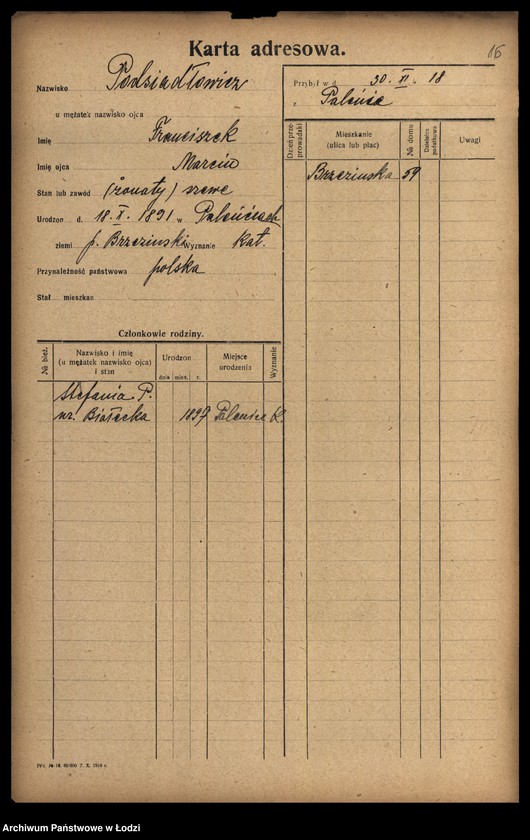 Karta adresowa.
16
Nazwisko Podsiadłowicz
u mężatek nazwisko ojca
Imię Franciszek
Imię ojca Marcin
Stan lub zawód (żonaty) szewc
Urodzon d. 18. X. 1891 w
ziemi p. Brzezinski Wyznanie Kat.
Przynależność państwowa polska
Stał mieszkan
Członkowie rodziny.
№ bież. Nazwisko i imię (u mężatek nazwisko ojca) i stan Urodzon dnia mies. r. Miejsce urodzenia Wyznanie
Stefania P.
Białecka 1897 K.
Przybył w d. 30. XI. 18
z
Dzień przeprowadzki Mieszkanie (ulica lub plac) № domu Dzielnica podatkowa Uwagi
Brzezinska 59
Archiwum Państwowe w Łodzi